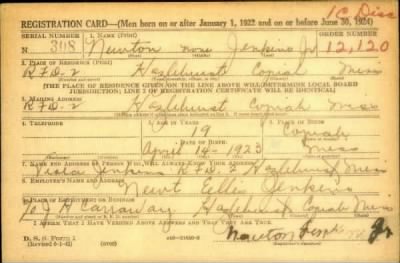 1C Disc
REGISTRATION CARD—(Men born on or after January 1, 1922 and on or before June 30, 1924)
SERIAL NUMBER 1. NAME (Print) ORDER NUMBER
N 308 Newton none Jenkins Jr 12,120
2. PLACE OF RESIDENCE (Print)
R F D-2 Hazlehurst Copiah Miss
[THE PLACE OF RESIDENCE GIVEN ON THE LINE ABOVE WILL DETERMINE LOCAL BOARD
JURISDICTION; LINE 2 OF REGISTRATION CERTIFICATE WILL BE IDENTICAL]
3. MAILING ADDRESS
R F D-2 Hazlehurst Copiah Miss
4. TELEPHONE 5. AGE IN YEARS 6. PLACE OF BIRTH
19 Copiah
DATE OF BIRTH
April 14- 1923 Miss
7. NAME AND ADDRESS OF PERSON WHO WILL ALWAYS KNOW YOUR ADDRESS
Jenkins R F D-2 Hazlehurst Miss
8. EMPLOYER'S NAME AND ADDRESS
Newt Ellis Jenkins
Carraway Hazlehurst Copiah Miss
I AFFIRM THAT I HAVE VERIFIED ABOVE ANSWERS AND THAT THEY ARE TRUE.
D. S. S. Form 1
Newton Jr